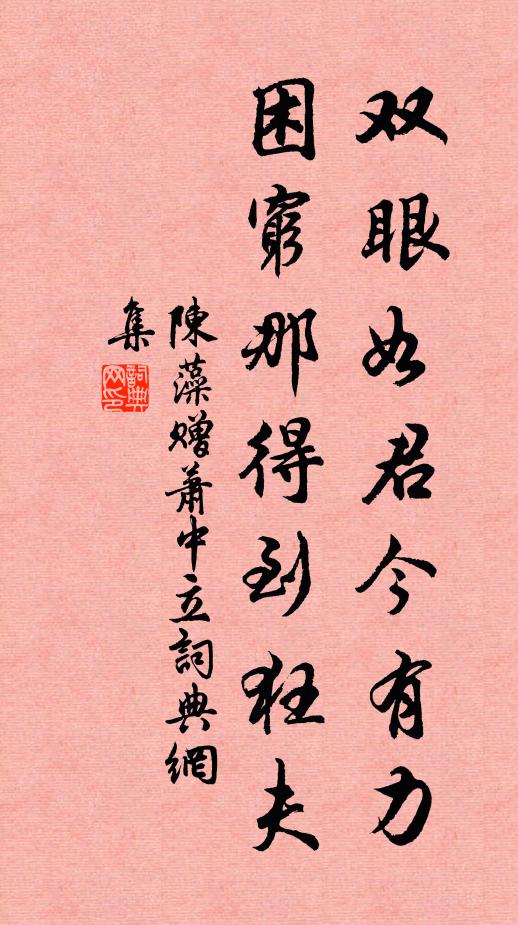 双眼如君今有力
困窮那得到狂夫
陳藻贈蕭中立詞典網
集
詞典
网印